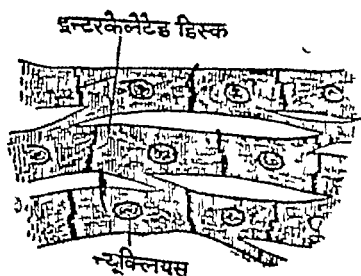 इन्टरकैलेटैड डिस्क
न्यूक्लियस